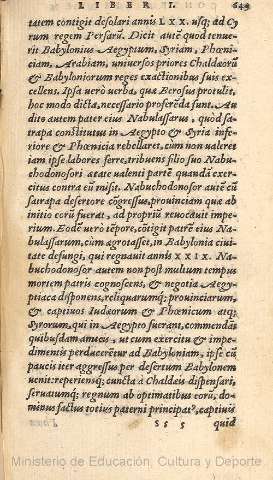 LIBER I. 649
tatem contigit desolari annis LXX. usq; ad Cy
rum regem Persarū. Dicit autē quod tenue-
rit Babylonius Aegyptum, Syriam, Phœni-
ciam, Arabiam, universos priores Chaldæorū
& Babyloniorum reges exactionibus suis ex-
cellens. Ipsa verò uerba, quæ Berosus protulit,
hoc modo dicta, necessariò proferēda sunt. Au
dito autem pater eius Nabulassarus, quòd sa-
trapa constitutus in Aegypto & Syria infe-
riore & Phœnicia rebellaret, cùm non valeret
iam ipse labores ferre, tribuens filio suo Nabu-
chodonosori ætate ualenti partē quandā exer-
citus contra eū misit. Nabuchodonosor autē cū
satrapa desertore cōgressus, prouinciam quæ ab
initio eorū fuerat, ad propriū reuocauit impe-
rium. Eodē uerò tēpore, cōtigit patrē eius Na-
bulassarum, cùm ægrotasset, in Babylonia ciui
tate defungi, qui regnauit annis XXIX. Na-
buchodonosor autem non post multum tempus
mortem patris cognoscens, & negotia Aegy-
ptiaca disponens, reliquarumq; prouinciarum,
& captiuos Iudæorum & Phœnicum atq;
Syrorum, qui in Aegypto fuerant, commendās
quibusdam amicis, ut cum exercitu & impe-
dimentis perducerētur ad Babyloniam, ipse cū
paucis iter aggressus per desertum Babylonem
uenit: reperiensq; cuncta à Chaldæis dispensari,
seruatumq; regnum ab optimatibus eorū, do-
minus factus totius paterni principatꝰ, captiuis
sss 5 quid
Ministerio de Educación, Cultura y Deporte